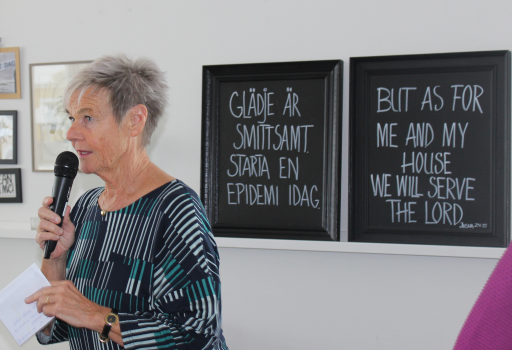 GLÄDJE ÄR
SMITTSAMT.
STARTA EN
EPIDEMI IDAG.
BUT AS FOR
ME AND MY
HOUSE
WE WILL SERVE
THE LORD.